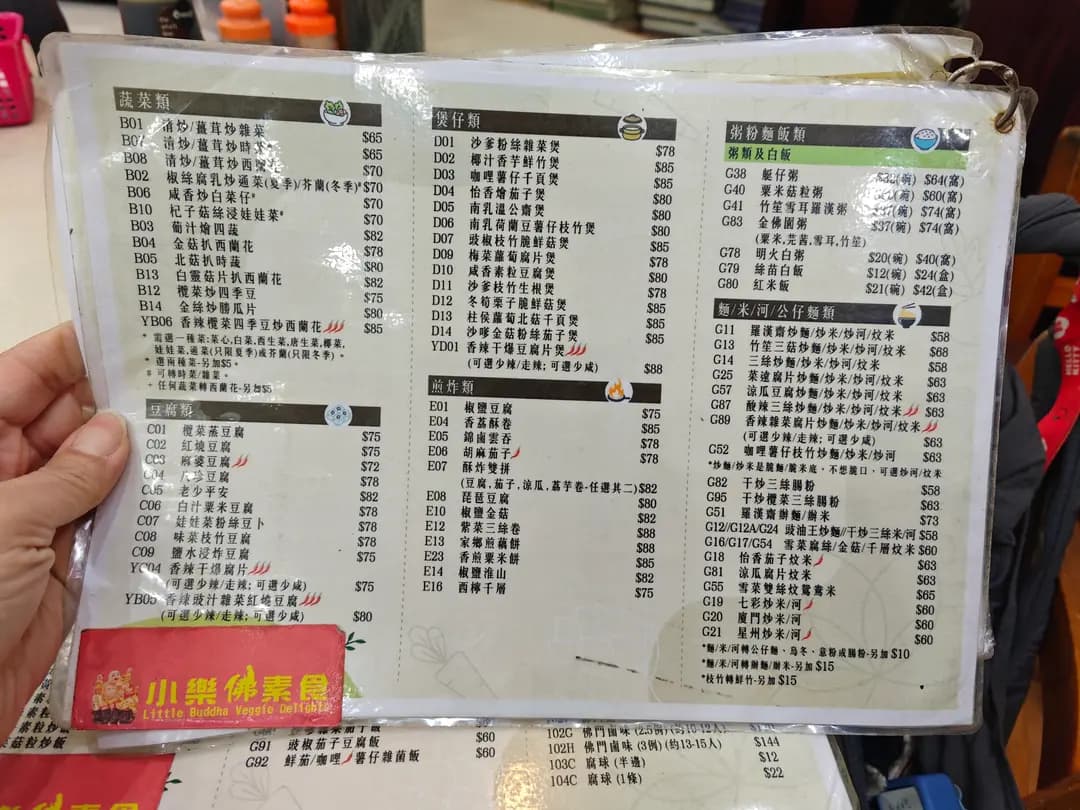 蔬菜類
B01 清炒/薑茸炒雜菜 $65
B07 清炒/薑茸炒時菜* $65
B08 清炒/薑茸炒西蘭花 $70
B02 椒絲腐乳炒通菜(夏季)/芥蘭(冬季)# $70
B06 咸香炒白菜仔* $70
B10 杞子菇絲浸娃娃菜* $70
B03 葡汁燴四蔬 $82
B04 金菇扒西蘭花 $78
B05 北菇扒時蔬 $80
B13 白靈菇片扒西蘭花 $82
B12 欖菜炒四季豆 $75
B14 金絲炒勝瓜片 $80
YB06 香辣欖菜四季豆炒西蘭花 $85
* 需選一種菜:菜心,白菜,西生菜,唐生菜,椰菜,
娃娃菜,通菜(只限夏季)或芥蘭(只限冬季)。
* 選兩種菜-另加$5。
# 可轉時菜/雜菜。
+ 任何蔬菜轉西蘭花-另加$5
豆腐類
C01 欖菜蒸豆腐 $75
C02 紅燒豆腐 $75
C03 麻婆豆腐 $72
C04 八珍豆腐 $78
C05 老少平安 $82
C06 白汁粟米豆腐 $78
C07 娃娃菜粉絲豆卜 $78
C08 味菜枝竹豆腐 $78
C09 鹽水浸炸豆腐 $75
YC04 香辣干爆腐片
(可選少辣/走辣; 可選少咸) $75
YB05 香辣豉汁雜菜紅燒豆腐
(可選少辣/走辣; 可選少咸) $80
小樂佛素食
Little Buddha Veggie Delights
煲仔類
D01 沙爹粉絲雜菜煲 $78
D02 椰汁香芋鮮竹煲 $80
D03 咖哩薯仔千頁煲 $80
D04 怡香燴茄子煲 $80
D05 南乳溫公齋煲 $80
D06 南乳荷蘭豆薯仔枝竹煲 $80
D07 豉椒枝竹脆鮮菇煲 $85
D09 梅菜蘿蔔腐片煲 $78
D10 咸香素粒豆腐煲 $80
D11 沙爹枝竹生根煲 $78
D12 冬筍栗子脆鮮菇煲 $85
D13 柱侯蘿蔔北菇千頁煲 $85
D14 沙嗲金菇粉絲茄子煲 $85
YD01 香辣干爆豆腐片煲
(可選少辣/走辣; 可選少咸) $88
煎炸類
E01 椒鹽豆腐 $75
E04 香荔酥卷 $85
E05 錦鹵雲吞 $78
E06 胡麻茄子 $78
E07 酥炸雙拼
(豆腐,茄子,涼瓜,荔芋卷-任選其二) $82
E08 琵琶豆腐 $80
E10 椒鹽金菇 $82
E12 紫菜三絲卷 $88
E13 家鄉煎藕餅 $88
E23 香煎粟米餅 $85
E14 椒鹽淮山 $82
E16 西檸千層 $75
粥粉麵飯類
粥類及白飯
G38 艇仔粥 $32(碗) $64(窩)
G40 粟米菇粒粥 $60(窩)
G41 竹笙雪耳羅漢粥 $37(碗) $74(窩)
G83 金佛園粥 $37(碗) $74(窩)
(粟米,芫茜,雪耳,竹笙)
G78 明火白粥 $20(碗) $40(窩)
G79 絲苗白飯 $12(碗) $24(盒)
G80 紅米飯 $21(碗) $42(盒)
麵/米/河/公仔麵類
G11 羅漢齋炒麵/炒米/炒河/炆米 $58
G13 竹笙三菇炒麵/炒米/炒河/炆米 $68
G14 三絲炒麵/炒米/炒河/炆米 $58
G25 菜遠腐片炒麵/炒米/炒河/炆米 $63
G57 涼瓜豆腐炒麵/炒米/炒河/炆米 $63
G87 酸辣三絲炒麵/炒米/炒河/炆米 $63
G89 香辣雜菜腐片炒麵/炒米/炒河/炆米
(可選少辣/走辣; 可選少咸) $63
G52 咖哩薯仔枝竹炒麵/炒米/炒河 $63
*炒麵/炒米是脆麵/脆米底、不想脆口、可選炒河/炆米
G82 干炒三絲腸粉 $58
G95 干炒欖菜三絲腸粉 $63
G51 羅漢齋辦麵/辦米 $73
G12/G12A/G24 豉油王炒麵//干炒三絲米/河 $58
G16/G17/G54 雪菜腐絲/金菇/千層炆米 $60
G18 怡香茄子炆米 $63
G81 涼瓜腐片炆米 $63
G55 雪菜雙絲炆鴛鴦米 $65
G19 七彩炒米/河 $60
G20 廈門炒米/河 $60
G21 星州炒米/河 $60
*麵/米/河轉公仔麵、烏冬、意粉或腸粉-另加 $10
*麵/米/河轉辦麵/辦米-另加 $15
*枝竹轉鮮竹-另加 $15
G91 豉椒茄子豆腐飯 $60
G92 鮮茄/咖哩薯仔雜菌飯 $60
102G 佛門鹵味 (2.5例) (約10-12人)
102H 佛門鹵味 (3例) (約13-15人) $144
103C 腐球 (半邊) $12
104C 腐球 (1條) $22